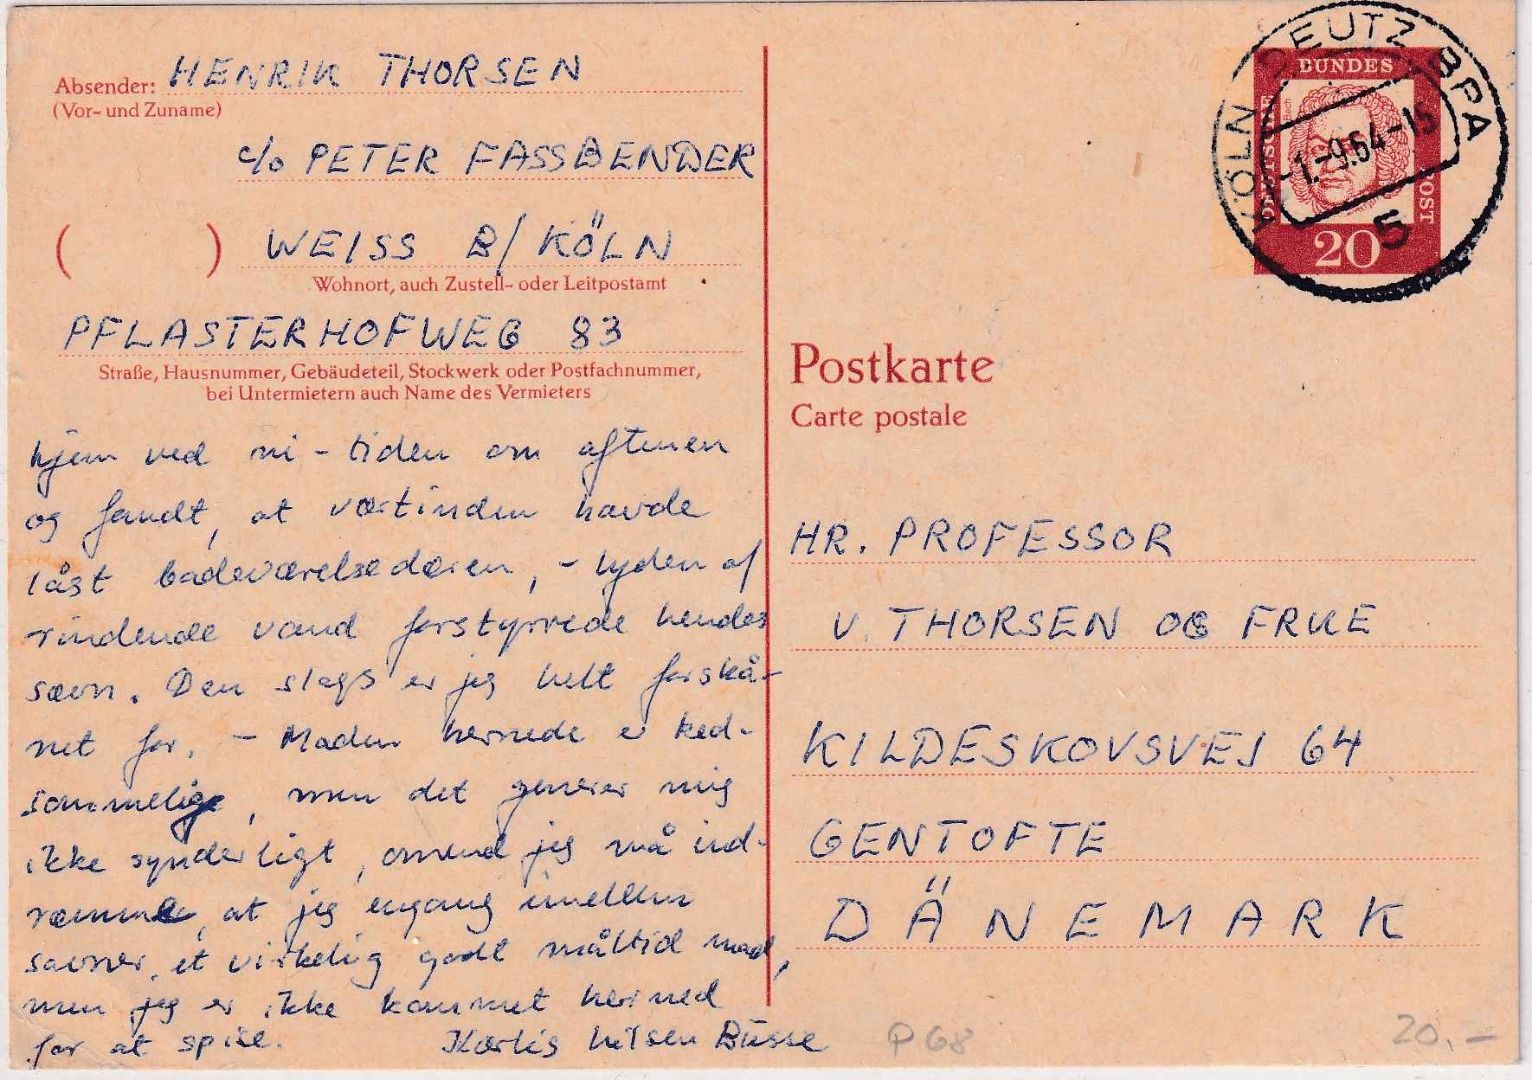 Absender: HENRIK THORSEN
(Vor- und Zuname)
c/o PETER FASSBENDER
( ) WEISS B/KÖLN
Wohnort, auch Zustell- oder Leitpostamt
PFLASTERHOFWEG 83
Straße, Hausnummer, Gebäudeteil, Stockwerk oder Postfachnummer,
bei Untermietern auch Name des Vermieters
hjem ved ni-tiden om aftenen
og fandt, at værtinden havde
låst badeværelsedøren, - lyden af
rindende vand forstyrrede hendes
søvn. Den slags er jeg helt forskå-
net for. - Maden hernede er ked-
sommelige, men det generer mig
ikke synderligt, omend jeg må ind-
rømme, at jeg engang imellem
savner et virkelig godt måltid mad,
men jeg er ikke kommet herned
for at spise. Kærlig hilsen Busse
KÖLN DEUTZ BPA
-1.-9.64-15
5
DEUTSCHE
BUNDES
POST
20
Postkarte
Carte postale
HR. PROFESSOR
V. THORSEN OG FRUE
KILDESKOVSVEJ 64
GENTOFTE
DÄNEMARK
P68
20,-